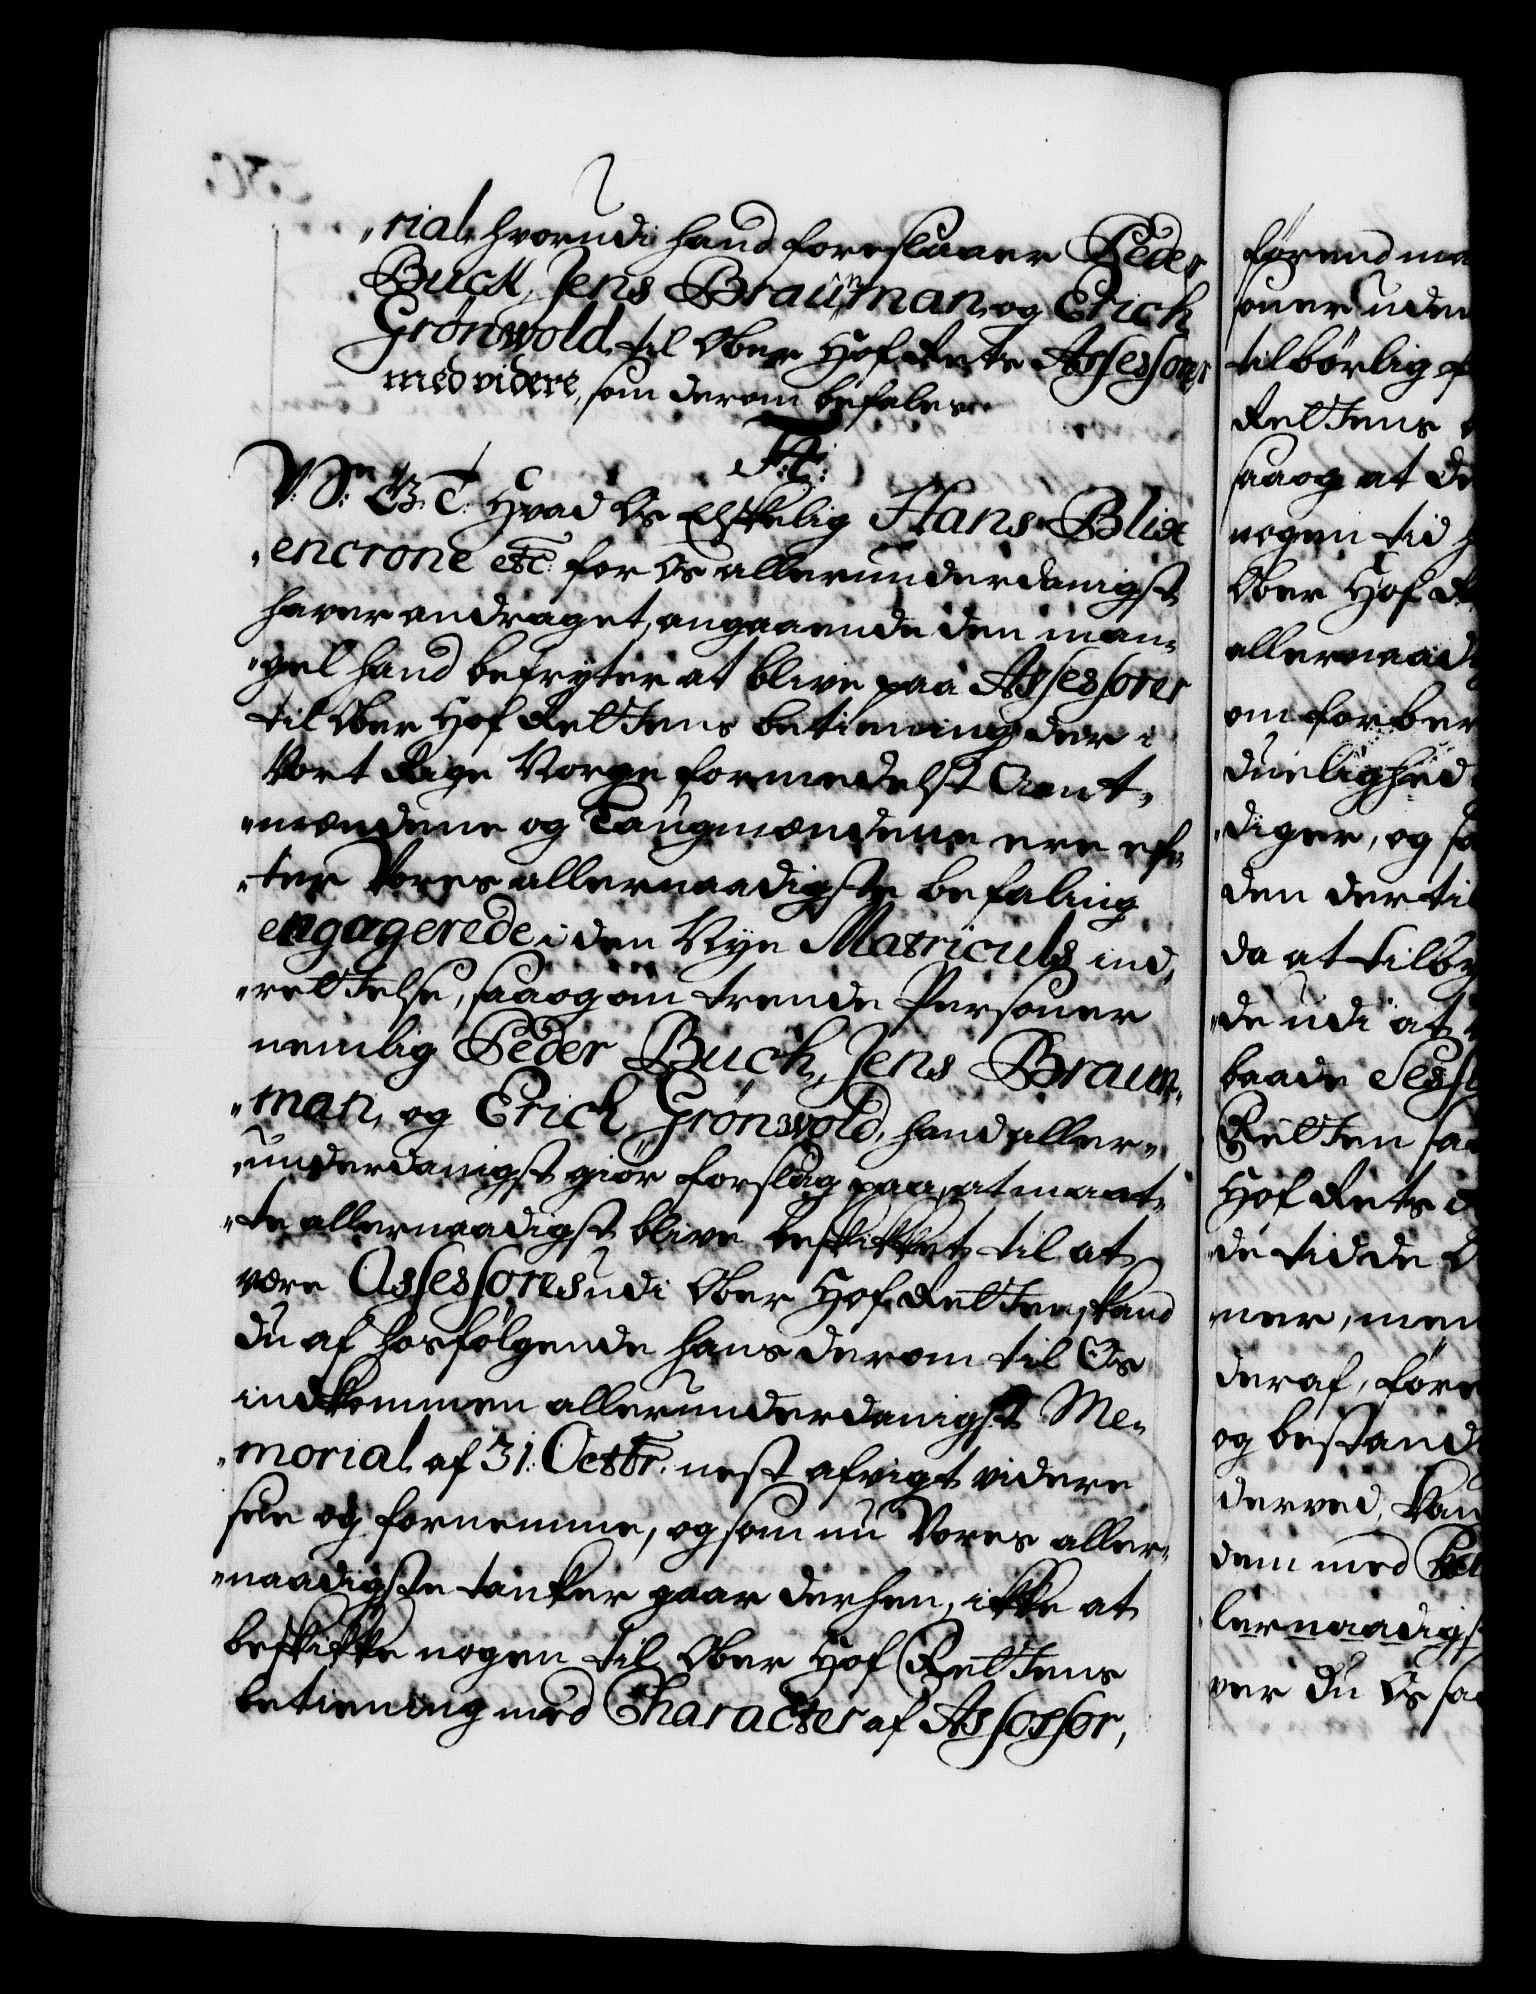 „rial, hvorudi hand foreslaaer Peder
Buck, Jens Braunman, og Erich
Grönwold, til Ober Hof Rets Assessorer
med videre, som derom befales.
F: 4.
V. S: G. T. Hvad Os Elskelig Hans Blix
„encrone etc: for Os allerunderdanigst
haver andraget, angaaende den man„
„gel hand befrÿter at blive paa Assessorer
til Ober Hof Rettens betiening der i
Vort Rige Norge formedelst Amt„
„mændene og Laugmændene ere ef„
„ter Vores allernaadigste befaling
engagerede i den Nye Matriculs ind„
„rettelse, saa og om trende Personer
nemlig Peder Buch, Jens Braun„
„man, og Erich Grönwold, hand aller„
„underdanigst giör forslag paa, at maat„
„te allernaadigst blive beskikket til at
være Assessores udi Ober Hof Retten, kand
du af hosfölgende hans derom til Os
indkommen allerunderdanigst Me„
„morial, af 31: Octbr: nest afvigt videre
see og fornemme, og som nu Vores aller„
„naadigste tanker gaar derhen, ikke at
beskikke nogen til Ober Hof Rettens
betiening med Character af Assessor,
förend
uden
tilbörlig
Rettens
saa og at
nogen tid
Ober Hof
om
duelighed
„diger, og
den dertil
da at
„de udi at
baade
Retten
Hof Rets
de tid de
ner, men
deraf,
og
derved,
dem med
ver du Os